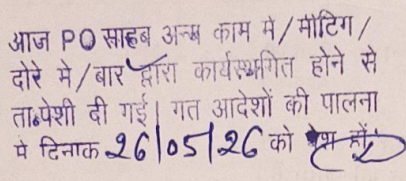 आज PO साहब अन्य काम मे/मीटिग/
दोरे मे/बार द्वारा कार्यस्थगित होने से
ता.पेशी दी गई। गत आदेशों की पालना
मे दिनाक 26/05/26 को पेश हों।